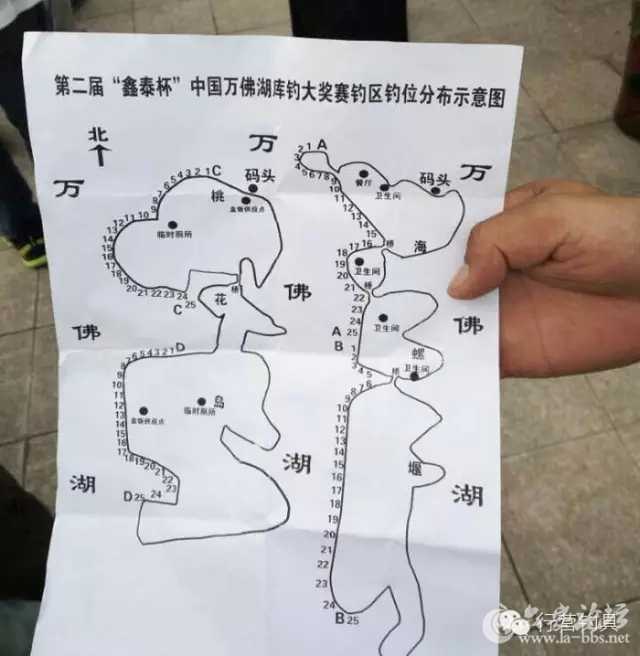 第二届“鑫泰杯”中国万佛湖库钓大奖赛钓区钓位分布示意图
北
万
佛
湖
C
1 2 3 4 5 6 7 8 9 10 11 12 13 14 15 16 17 18 19 20 21 22 23 24 25
C
码头
桃
盒饭供应点
临时厕所
桥
花
D
1 2 3 4 5 6 7 8 9 10 11 12 13 14 15 16 17 18 19 20 21 22 23 24 25
D
岛
盒饭供应点
临时厕所
万
佛
湖
A
1 2 3 4 5 6 7 8 9 10 11 12 13 14 15 16 17 18 19 20 21 22 23 24 25
A
餐厅
卫生间
码头
海
桥
卫生间
桥
卫生间
螺
卫生间
桥
B
1 2 3 4 5 6 7 8 9 10 11 12 13 14 15 16 17 18 19 20 21 22 23 24 25
B
堰
万
佛
湖
行营钓具
www.la-bbs.net